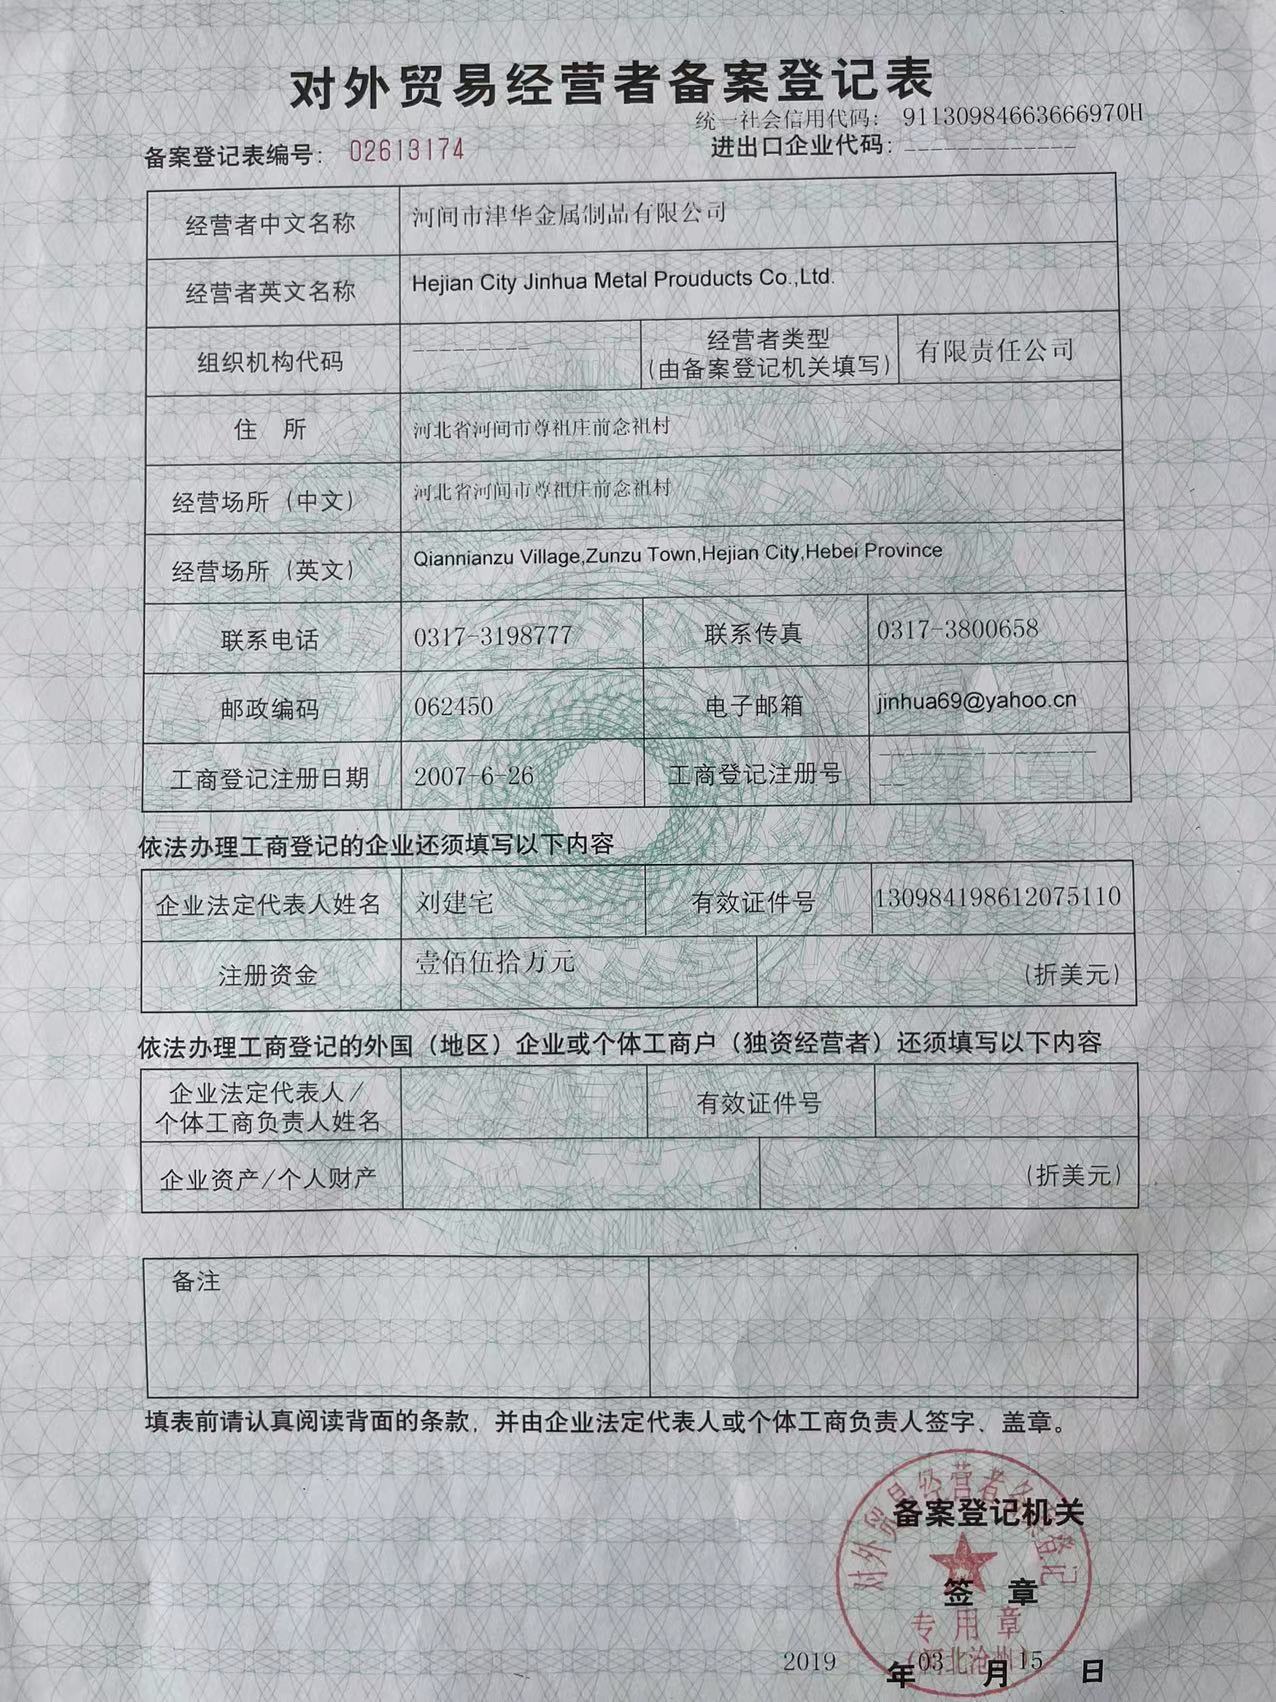 对外贸易经营者备案登记表
统一社会信用代码： 91130984663666970H
备案登记表编号： 02613174
进出口企业代码：-------------
经营者中文名称 河间市津华金属制品有限公司
经营者英文名称 Hejian City Jinhua Metal Prouducts Co.,Ltd.
组织机构代码 --------- 经营者类型
(由备案登记机关填写) 有限责任公司
住 所 河北省河间市尊祖庄前念祖村
经营场所（中文） 河北省河间市尊祖庄前念祖村
经营场所（英文） Qiannianzu Village,Zunzu Town,Hejian City,Hebei Province
联系电话 0317-3198777 联系传真 0317-3800658
邮政编码 062450 电子邮箱 jinhua69@yahoo.cn
工商登记注册日期 2007-6-26 工商登记注册号 ---------------
依法办理工商登记的企业还须填写以下内容
企业法定代表人姓名 刘建宅 有效证件号 130984198612075110
注册资金 壹佰伍拾万元 (折美元)
依法办理工商登记的外国（地区）企业或个体工商户（独资经营者）还须填写以下内容
企业法定代表人/
个体工商负责人姓名 有效证件号
企业资产/个人财产 (折美元)
备注
填表前请认真阅读背面的条款，并由企业法定代表人或个体工商负责人签字、盖章。
备案登记机关
签 章
对外贸易经营者备案登记
专用章
(河北沧州)
2019 年 03 月 15 日